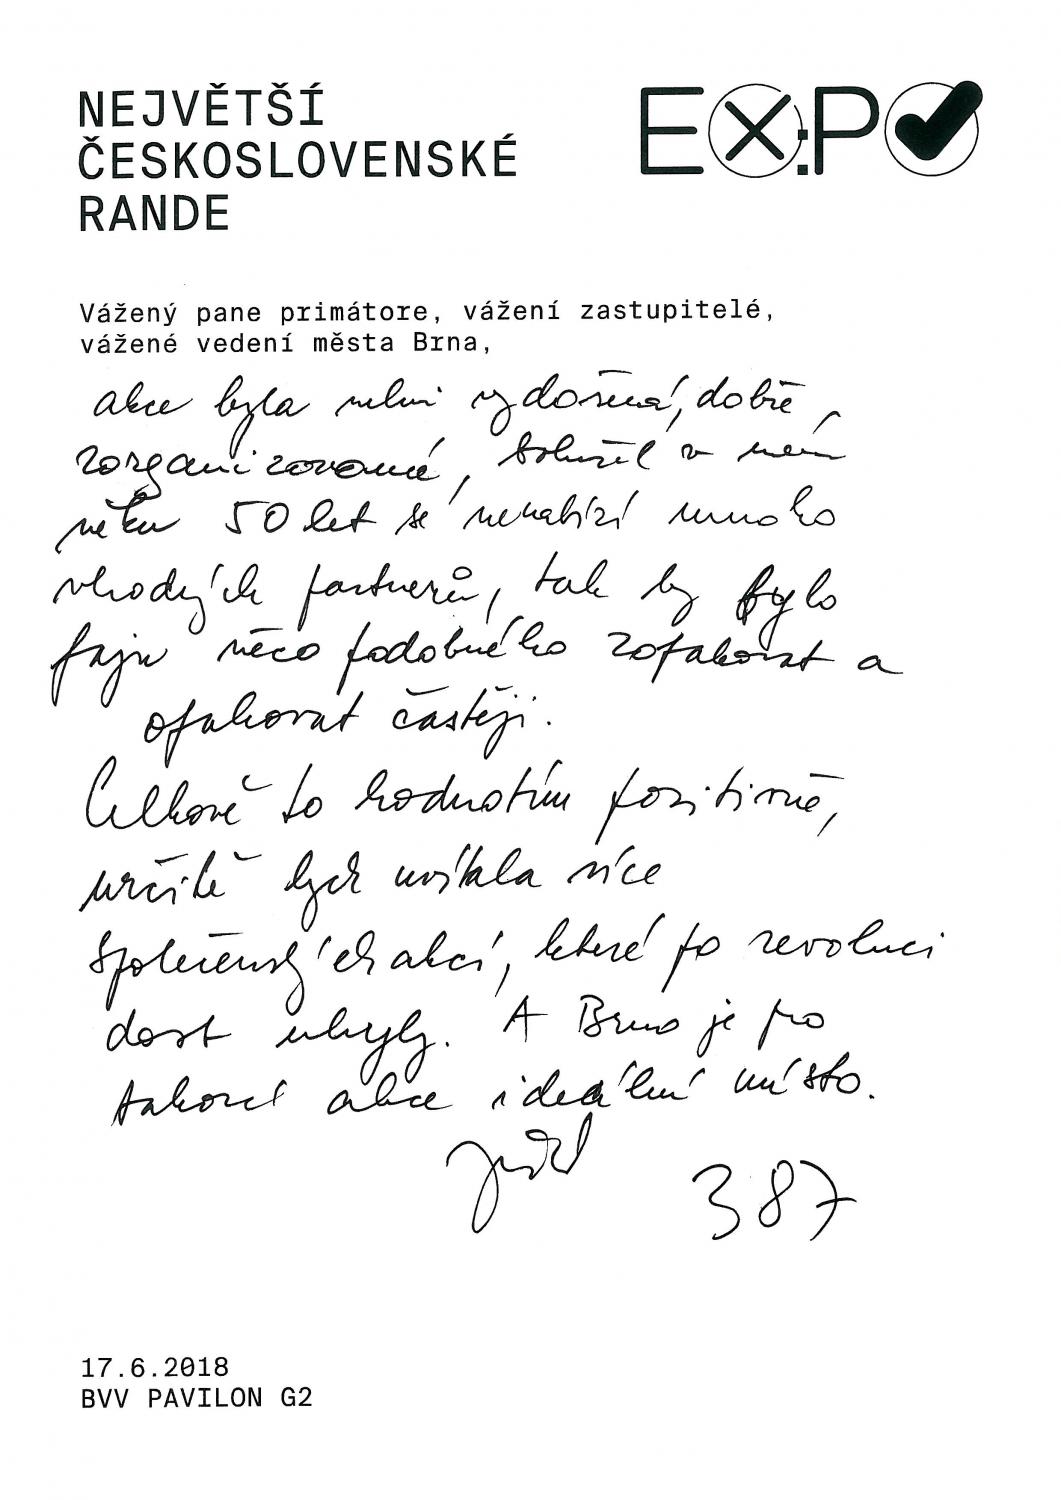 NEJVĚTŠÍ
ČESKOSLOVENSKÉ
RANDE
EX:PO
Vážený pane primátore, vážení zastupitelé,
vážené vedení města Brna,
akce byla velmi vydařená, dobře
zorganizovaná, bohužel v mém
věku 50 let se nenabízí mnoho
vhodných partnerů, tak by bylo
fajn něco podobného zopakovat a
opakovat častěji.
Celkově to hodnotím pozitivně,
určitě bych uvítala více
společenských akcí, které po revoluci
dost ubyly. A Brno je pro
takové akce ideální místo.
387
17.6.2018
BVV PAVILON G2